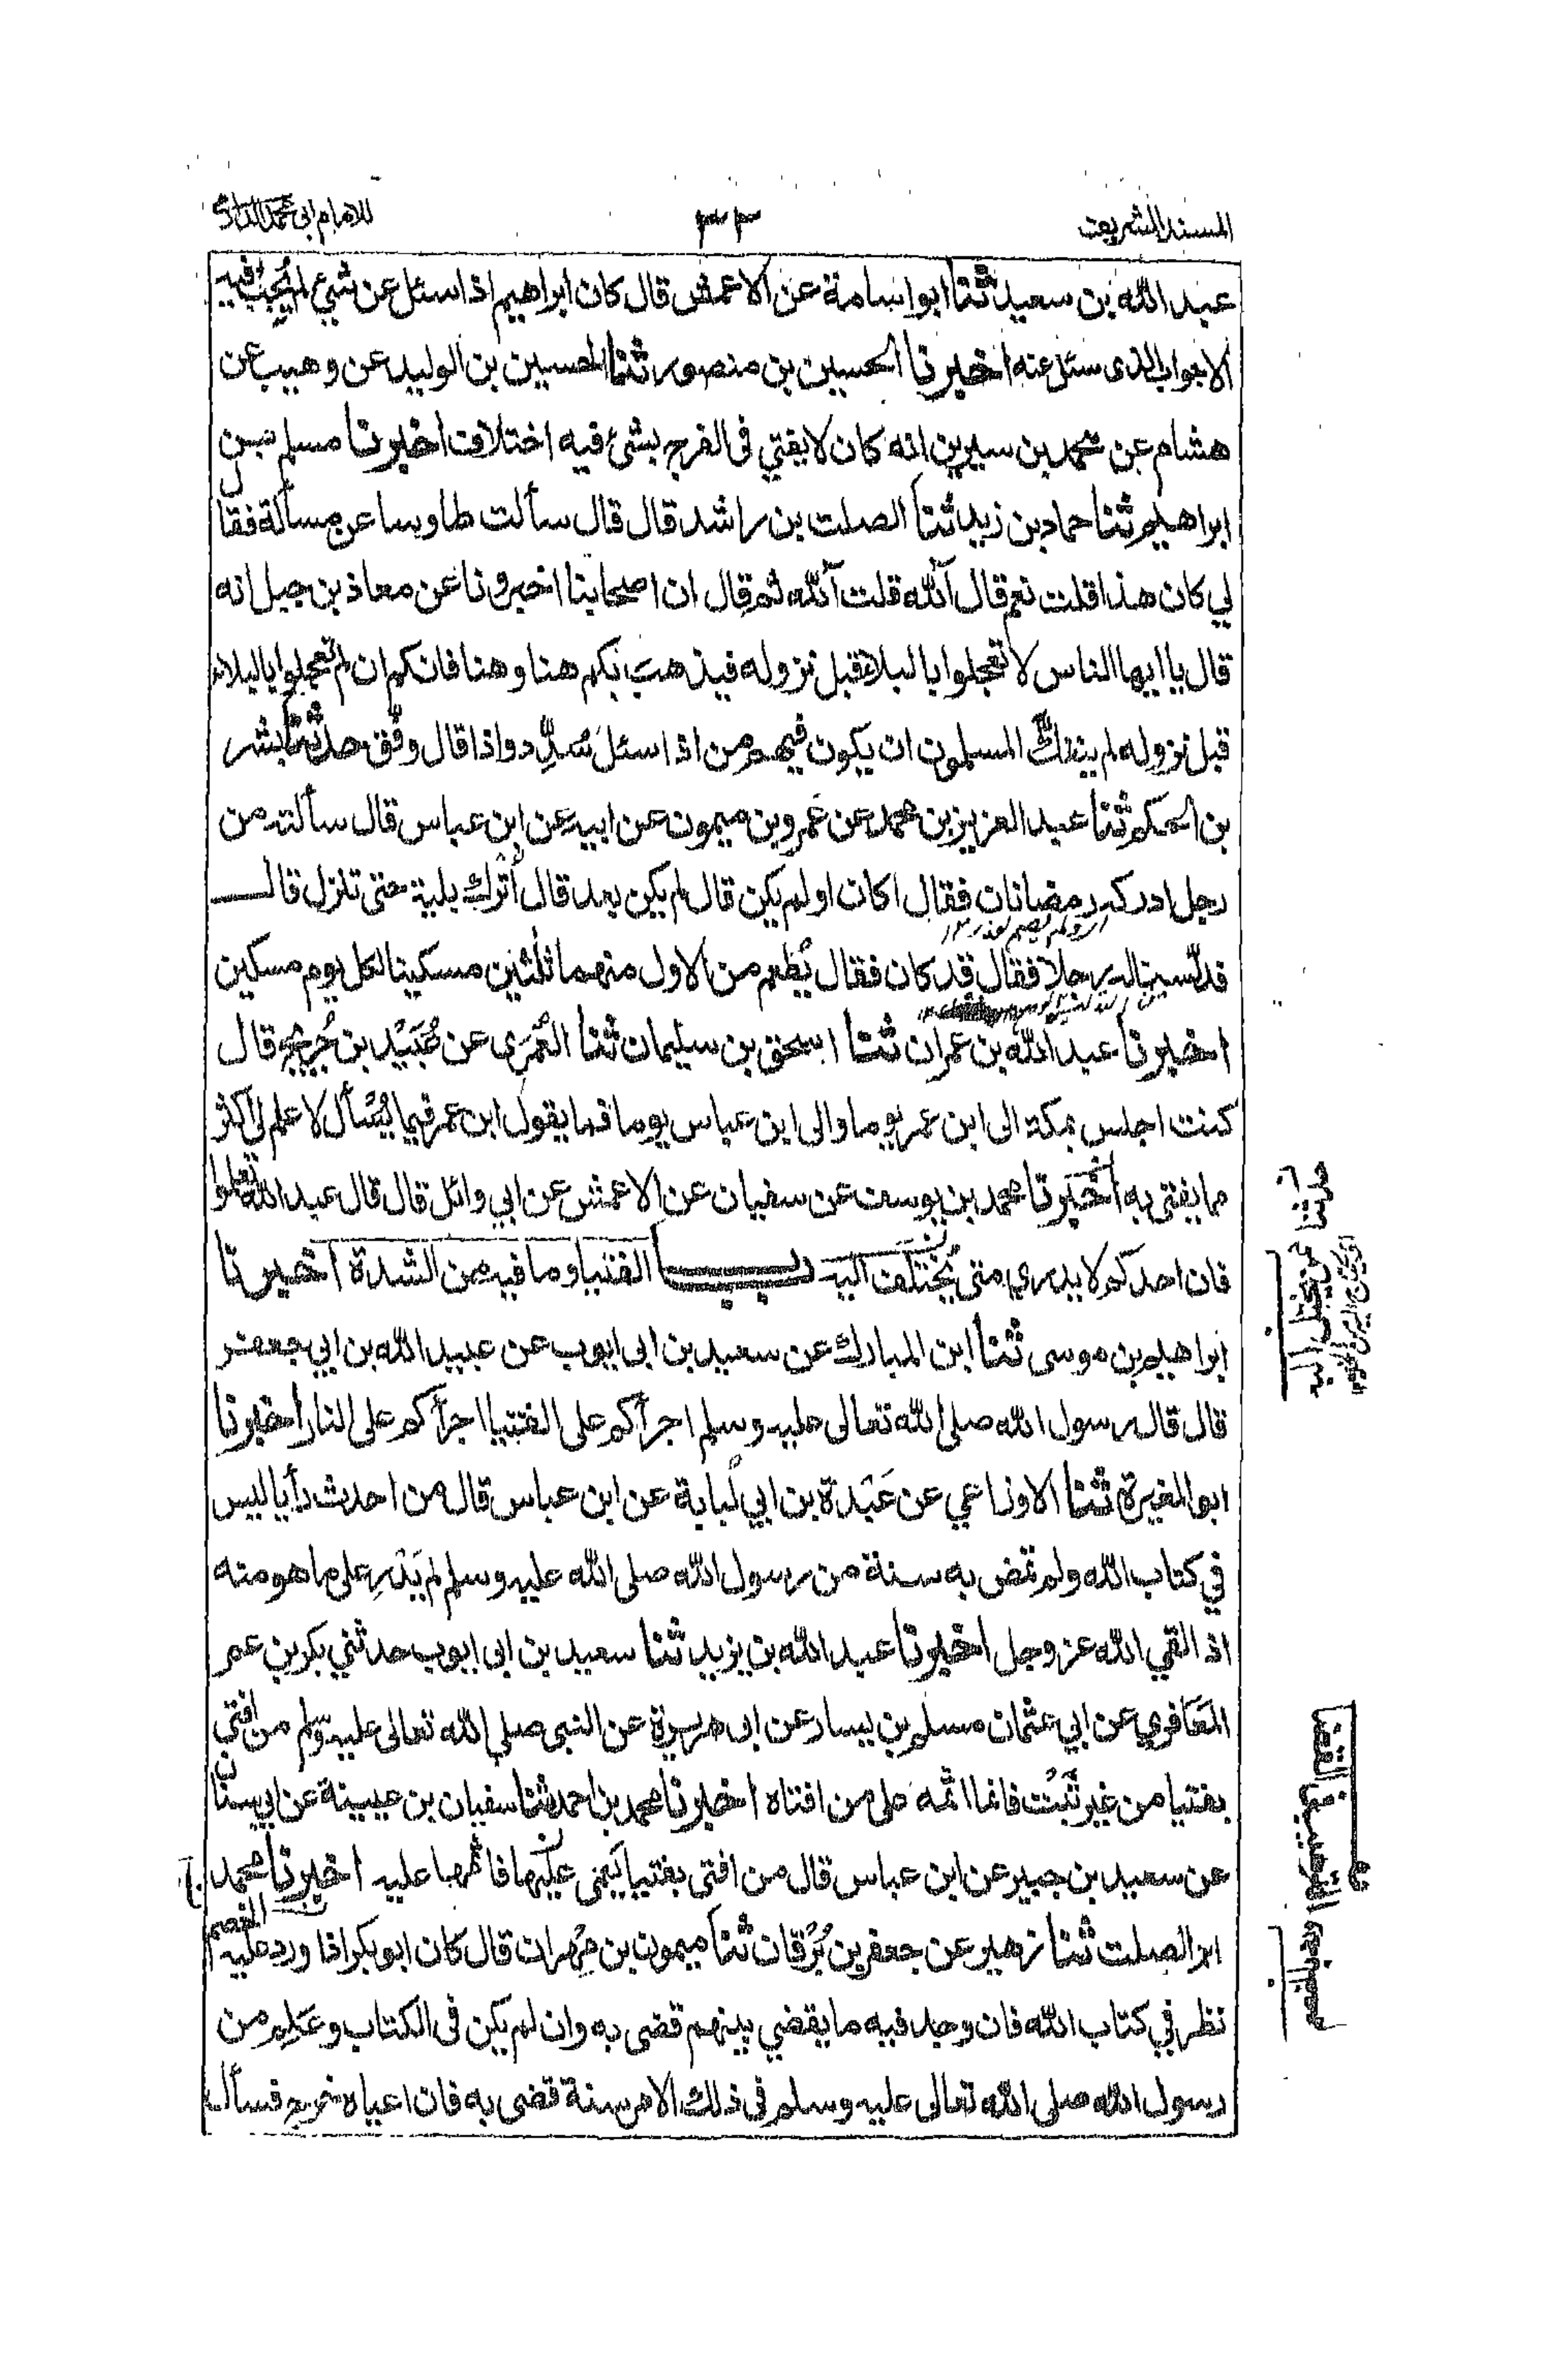 المسند الشريف
٣٣
للامام ابى محمد الدارمى
عبد الله بن سعيد ثنا ابو اسامة عن الاعمش قال كان ابراهيم اذا سئل عن شيئ لم يُجِبْ فيه
الا جواب الذى سئل عنه اخبرنا الحسين بن منصور ثنا الحسين بن الوليد عن وهيب عن
هشام عن محمد بن سيرين انه كان لا يفتي فى الفرج بشئ فيه اختلاف اخبرنا مسلم بن
ابراهيم ثنا حماد بن زيد ثنا الصلت بن راشد قال قال سألت طاوسا عن مسألة فقال
لي كان هذا قلت نعم قال آلله قلت آلله ثم قال ان اصحابنا اخبرونا عن معاذ بن جبل انه
قال يا ايها الناس لا تعجلوا بالبلاء قبل نزوله فيذهبَ بكم هنا وهنا فانكم ان لم تعجلوا بالبلاء
قبل نزوله لم ينفكّ المسلمون ان يكون فيهم من اذا سئلَ سُدِّد واذا قال وفّق حدثنا بشر
بن الحكم ثنا عبد العزيز بن محمد عن عمرو بن ميمون عن ابيه عن ابن عباس قال سألته من
رجل ادركه رمضانان فقال اكان او لم يكن قال لم يكن بعد قال أترك بلية حتى تنزل قال
فدلّسنا له رجلا فقال قد كان فقال يُطعم من الاول منهما ثلثين مسكينا لكل يوم مسكين
اخبرنا عبد الله بن عمران ثنا اسحق بن سليمان ثنا العُمَرِى عن عُبَيْد بن جُرَيج قال
كنت اجلس بمكة الى ابن عمر يوما والى ابن عباس يوما فما يقول ابن عمر فيما يُسْأل لا علم لي اكثر
مما يفتي به اخبرنا محمد بن يوسف عن سفيان عن الاعمش عن ابي وائل قال قال عبد الله تعلموا
فان احدكم لا يدري متى يُختلف اليه باب الفتيا وما فيه من الشدة اخبرنا
ابراهيم بن موسى ثنا ابن المبارك عن سعيد بن ابى ايوب عن عبيد الله بن ابي جعفر
قال قال رسول الله صلى الله تعالى عليه وسلم اجرأكم على الفتيا اجرأكم على النار اخبرنا
ابو المغيرة ثنا الاوزاعي عن عَبْدة بن ابي لُبابة عن ابن عباس قال من احدث رأيا ليس
في كتاب الله ولم تمض به سنة من رسول الله صلى الله عليه وسلم لم يَدْرِ على ما هو منه
اذا لقي الله عز وجل اخبرنا عبد الله بن يزيد ثنا سعيد بن ابى ايوب حدثني بكر بن عمر
المَعَافري عن ابي عثمان مسلم بن يسار عن ابى هريرة عن النبى صلى الله تعالى عليه وسلم من افتي
بفتيا من غير ثَبْت فانما اثمه على من افتاه اخبرنا محمد بن احمد ثنا سفيان بن عيينة عن ابي سنان
عن سعيد بن جبير عن ابن عباس قال من افتى بفتيا يُعَمّي عليها فاثمها عليه اخبرنا محمد
بن الصلت ثنا زهير عن جعفر بن بُرْقان ثنا ميمون بن مِهْران قال كان ابو بكر اذا ورد عليه الخصم
نظر في كتاب الله فان وجد فيه ما يقضي بينهم قضى به وان لم يكن فى الكتاب وعَلِم من
رسول الله صلى الله تعالى عليه وسلم فى ذلك الامر سنة قضى به فان اعياه خرج فسأل